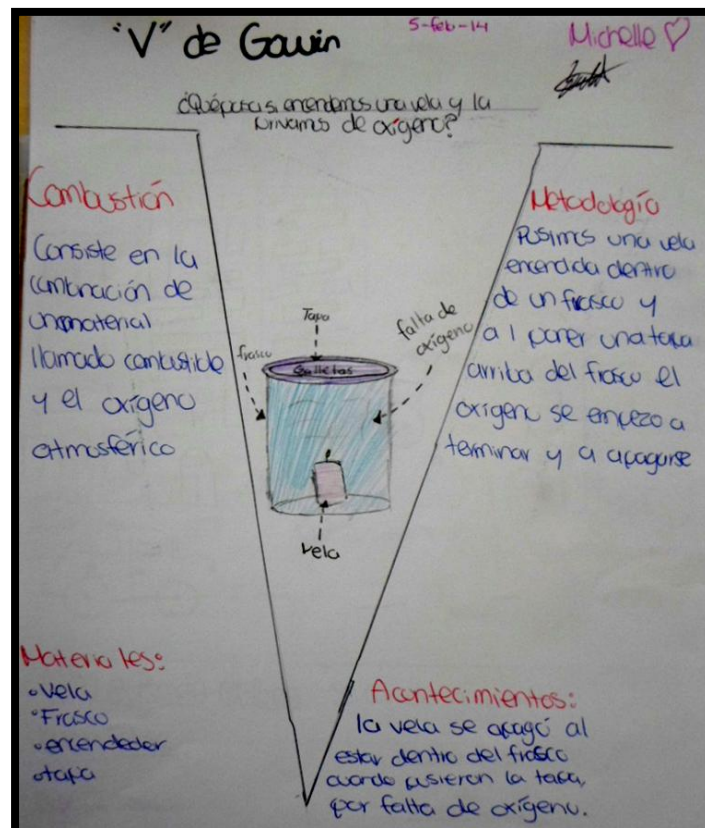 "V" de Gowin
5-feb-14
Michelle
¿Qué pasa si encendemos una vela y la
privamos de oxígeno?
Combustión
Consiste en la
combinación de
un material
llamado combustible
y el oxígeno
atmosférico
Materiales:
vela
Frasco
encendedor
tapa
Tapa
frasco
Galletas
falta de
oxígeno
vela
Metodología
Pusimos una vela
encendida dentro
de un frasco y
al poner una tapa
arriba del frasco el
oxigeno se empezo a
terminar y a apagarse
Acontecimientos:
la vela se apagó al
estar dentro del frasco
cuando pusieron la tapa,
por falta de oxígeno.